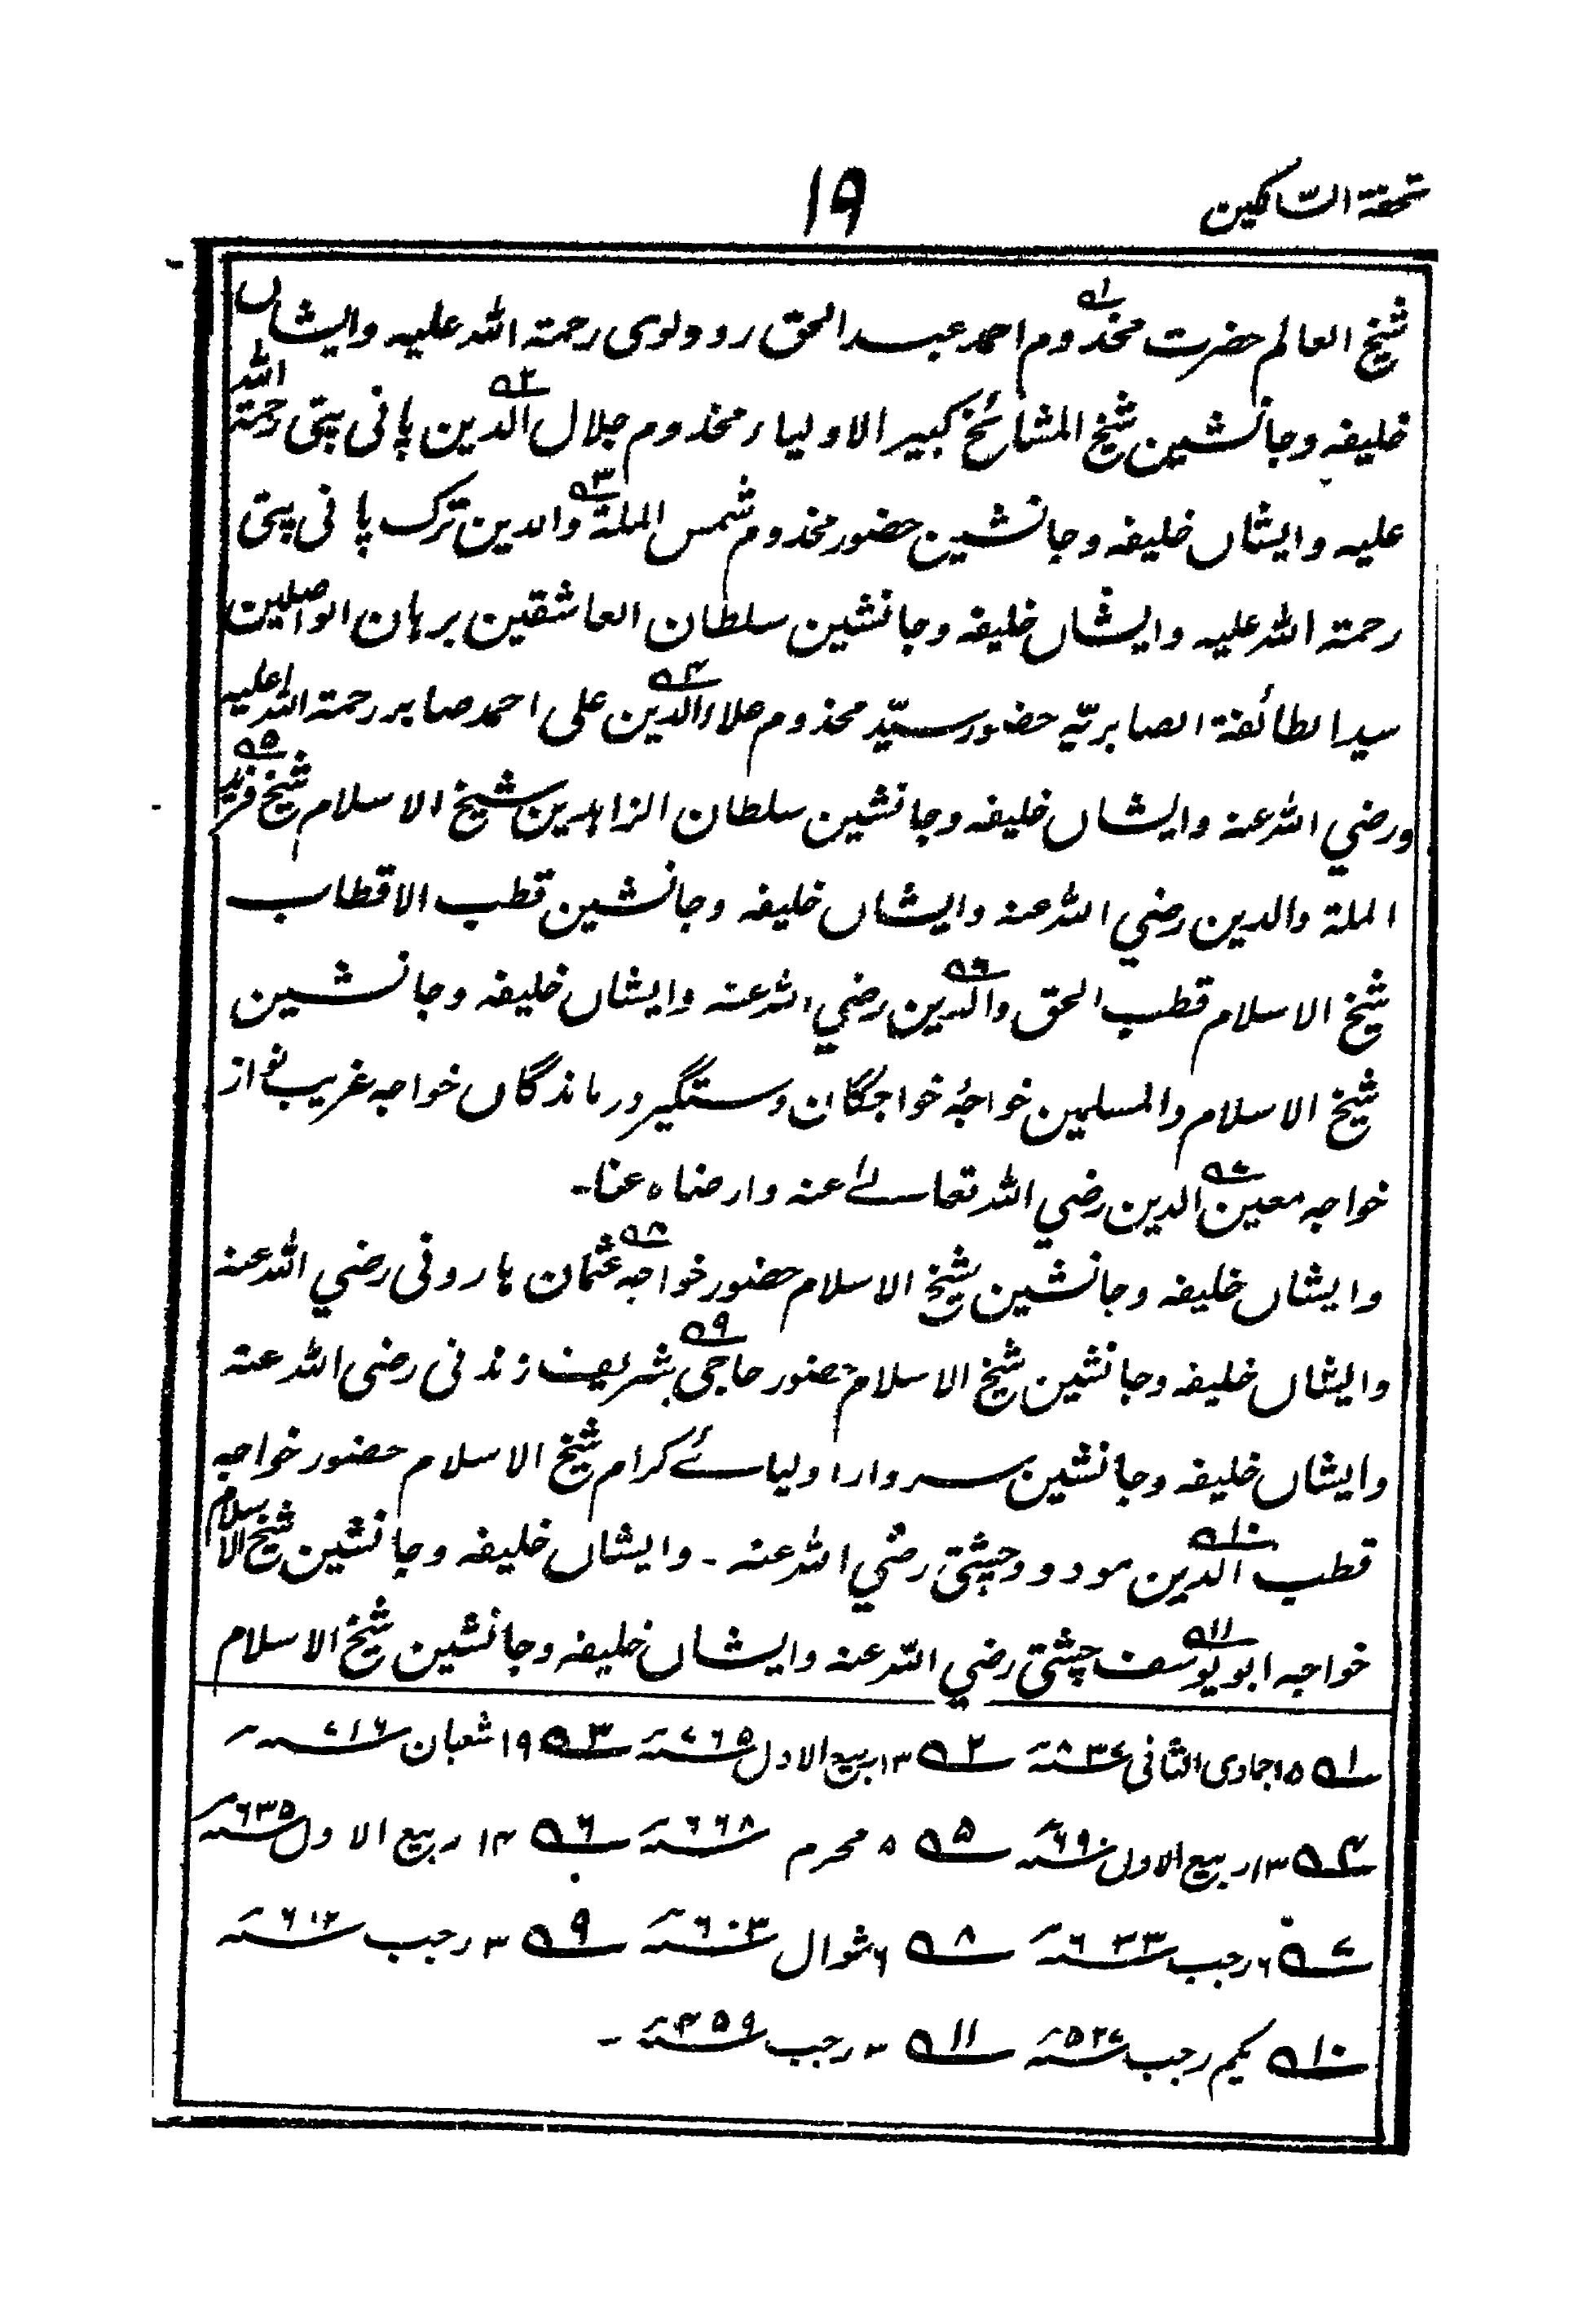 تحفۃ السّالکین
۱۹
شیخ العالم حضرت مخدوم۱ احمد عبدالحق رودولوی رحمتہ اللہ علیہ وایشاں
خلیفہ وجانشین شیخ المشائخ کبیر الاولیاء مخدوم جلال الدین۲ پانی پتی رحمتہ اللہ
علیہ وایشاں خلیفہ وجانشین حضور مخدوم شمس الملۃ۳ والدین ترک پانی پتی
رحمتہ اللہ علیہ وایشاں خلیفہ وجانشین سلطان العاشقین برہان الواصلین
سید الطائفۃ الصابریّہ حضور سیّد مخدوم علاءالدین۴ علی احمد صابر رحمتہ اللہ علیہ
ورضي اللہ عنہ وایشاں خلیفہ وجانشین سلطان الزاہدین شیخ الاسلام شیخ فرید۵
الملۃ والدین رضي اللہ عنہ وایشاں خلیفہ وجانشین قطب الاقطاب
شیخ الاسلام قطب الحق والدین۶ رضي اللہ عنہ وایشاں خلیفہ وجانشین
شیخ الاسلام والمسلمین خواجۂ خواجگان دستگیر درماندگاں خواجہ غریب نواز
خواجہ معین الدین۷ رضي اللہ تعالےٰ عنہ وارضاہ عنا۔
وایشاں خلیفہ وجانشین شیخ الاسلام حضور خواجہ۸ عثمان ہارونی رضي اللہ عنہ
وایشاں خلیفہ وجانشین شیخ الاسلام حضور حاجی۹ شریف زندنی رضی اللہ عنہ
وایشاں خلیفہ وجانشین سردار اولیائے کرام شیخ الاسلام حضور خواجہ
قطب الدین۱۰ مودود چشتی رضي اللہ عنہ ۔ وایشاں خلیفہ وجانشین شیخ الاسلام
خواجہ ابویوسف۱۱ چشتی رضي اللہ عنہ وایشاں خلیفہ وجانشین شیخ الاسلام
۱ ۱۵ جمادی الثانی ۸۳۷ھ ۲ ۱۳ ربیع الاول ۷۶۵ھ ۳ ۱۹ شعبان ۷۱۶ھ
۴ ۱۳ ربیع الاول ۶۹۰ھ ۵ ۵ محرم ۶۶۸ھ ۶ ۱۴ ربیع الاول ۶۳۵ھ
۷ ۶ رجب ۶۳۳ھ ۸ ۶ شوال ۶۰۳ھ ۹ ۳ رجب ۶۱۲ھ
۱۰ یکم رجب ۵۲۷ھ ۱۱ ۳ رجب ۴۵۹ھ ۔